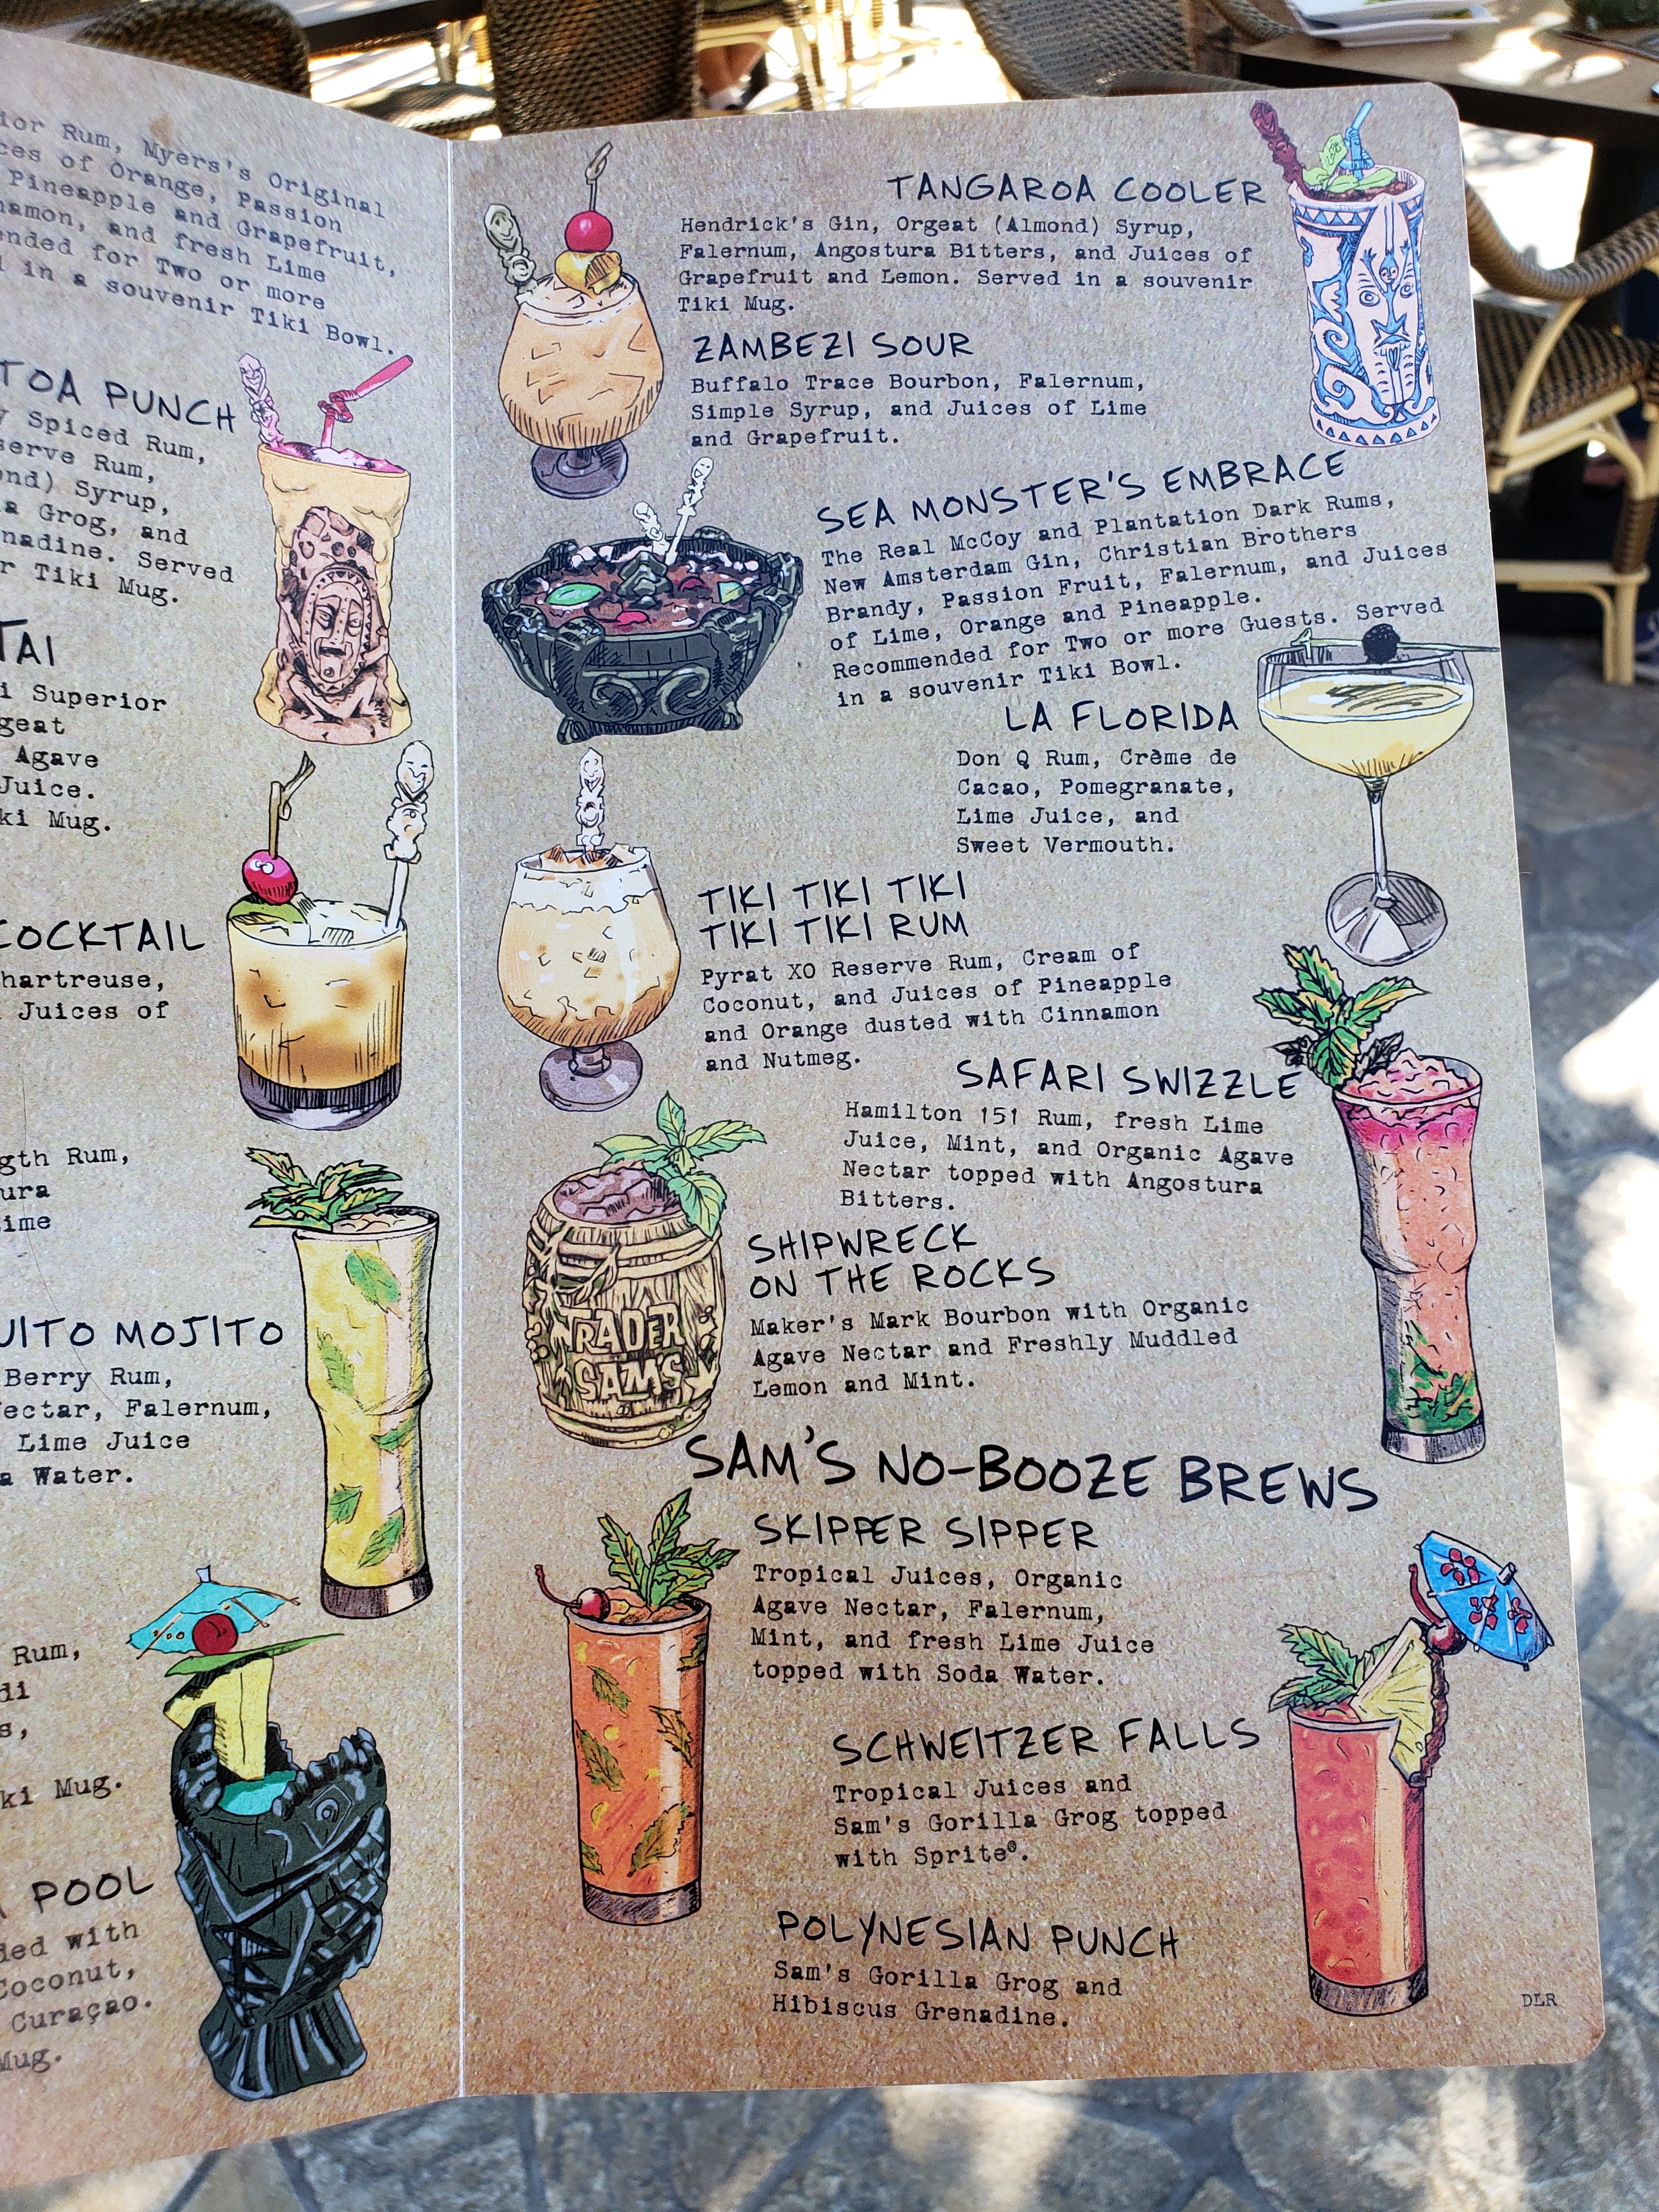 ior Rum, Myers's Original
ces of Orange, Passion
Pineapple and Grapefruit,
namon, and fresh Lime
ended for Two or more
in a souvenir Tiki Bowl.
TOA PUNCH
y Spiced Rum,
serve Rum,
ond) Syrup,
a Grog, and
nadine. Served
r Tiki Mug.
TAI
i Superior
geat
Agave
Juice.
ki Mug.
COCKTAIL
hartreuse,
Juices of
gth Rum,
ura
ime
UITO MOJITO
Berry Rum,
ectar, Falernum,
Lime Juice
a Water.
Rum,
di
s,
ki Mug.
POOL
ded with
Coconut,
Curaçao.
Mug.
TANGAROA COOLER
Hendrick's Gin, Orgeat (Almond) Syrup,
Falernum, Angostura Bitters, and Juices of
Grapefruit and Lemon. Served in a souvenir
Tiki Mug.
ZAMBEZI SOUR
Buffalo Trace Bourbon, Falernum,
Simple Syrup, and Juices of Lime
and Grapefruit.
SEA MONSTER'S EMBRACE
The Real McCoy and Plantation Dark Rums,
New Amsterdam Gin, Christian Brothers
Brandy, Passion Fruit, Falernum, and Juices
of Lime, Orange and Pineapple.
Recommended for Two or more Guests. Served
in a souvenir Tiki Bowl.
LA FLORIDA
Don Q Rum, Crème de
Cacao, Pomegranate,
Lime Juice, and
Sweet Vermouth.
TIKI TIKI TIKI
TIKI TIKI RUM
Pyrat XO Reserve Rum, Cream of
Coconut, and Juices of Pineapple
and Orange dusted with Cinnamon
and Nutmeg.
SAFARI SWIZZLE
Hamilton 151 Rum, fresh Lime
Juice, Mint, and Organic Agave
Nectar topped with Angostura
Bitters.
TRADER
SAM'S
SHIPWRECK
ON THE ROCKS
Maker's Mark Bourbon with Organic
Agave Nectar and Freshly Muddled
Lemon and Mint.
SAM'S NO-BOOZE BREWS
SKIPPER SIPPER
Tropical Juices, Organic
Agave Nectar, Falernum,
Mint, and fresh Lime Juice
topped with Soda Water.
SCHWEITZER FALLS
Tropical Juices and
Sam's Gorilla Grog topped
with Sprite®.
POLYNESIAN PUNCH
Sam's Gorilla Grog and
Hibiscus Grenadine.
DLR